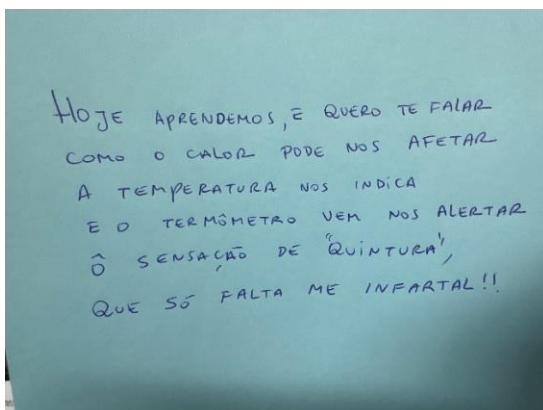 HOJE APRENDEMOS, E QUERO TE FALAR
COMO O CALOR PODE NOS AFETAR
A TEMPERATURA NOS INDICA
E O TERMÔMETRO VEM NOS ALERTAR
Ô SENSAÇÃO DE "QUINTURA",
QUE SÓ FALTA ME INFARTAL!!